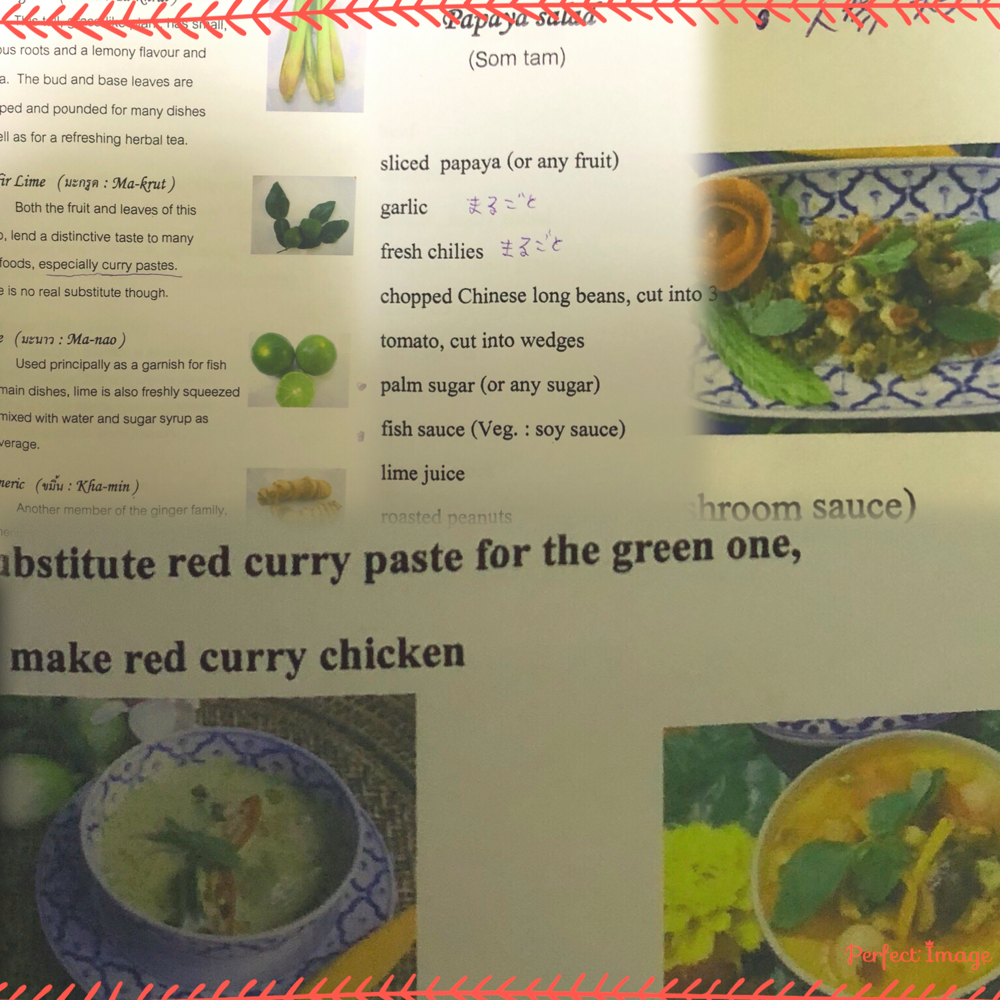 has small,
ous roots and a lemony flavour and
a. The bud and base leaves are
ped and pounded for many dishes
ell as for a refreshing herbal tea.
fir Lime (มะกรูด : Ma-krut)
Both the fruit and leaves of this
o, lend a distinctive taste to many
foods, especially curry pastes.
e is no real substitute though.
e (มะนาว : Ma-nao)
Used principally as a garnish for fish
main dishes, lime is also freshly squeezed
mixed with water and sugar syrup as
verage.
meric (ขมิ้น : Kha-min)
Another member of the ginger family,
Papaya salad
(Som tam)
sliced papaya (or any fruit)
garlic まるごと
fresh chilies まるごと
chopped Chinese long beans, cut into 3
tomato, cut into wedges
palm sugar (or any sugar)
fish sauce (Veg. : soy sauce)
lime juice
roasted peanuts
hroom sauce)
ubstitute red curry paste for the green one,
make red curry chicken
Perfect Image